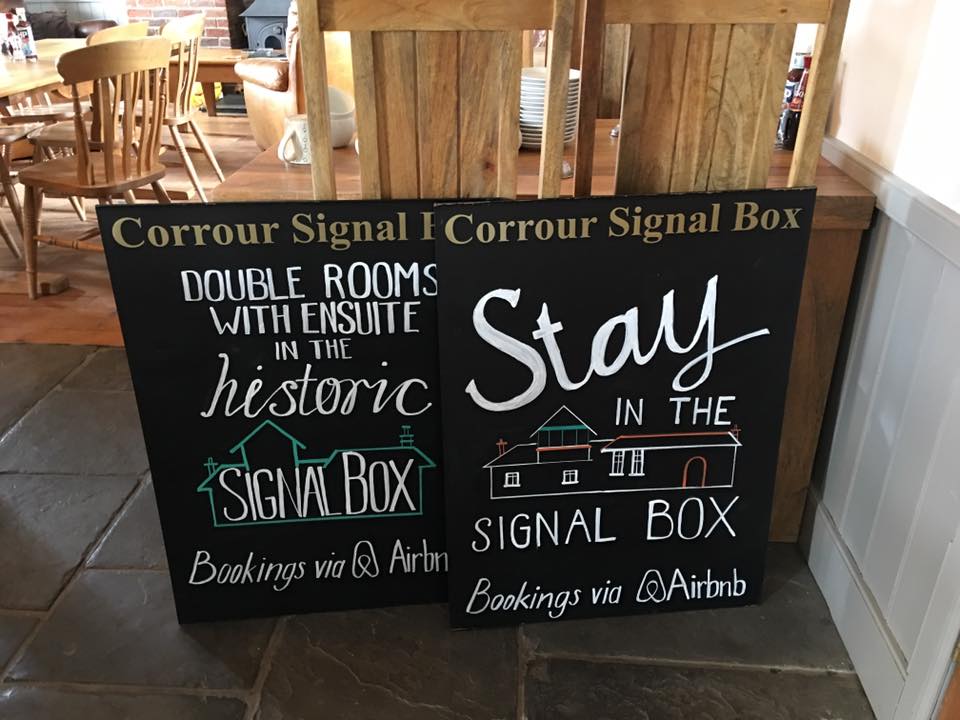 Corrour Signal
DOUBLE ROOMS
WITH ENSUITE
IN THE
historic
SIGNAL BOX
Bookings via Airbn
Corrour Signal Box
Stay
IN THE
SIGNAL BOX
Bookings via Airbnb